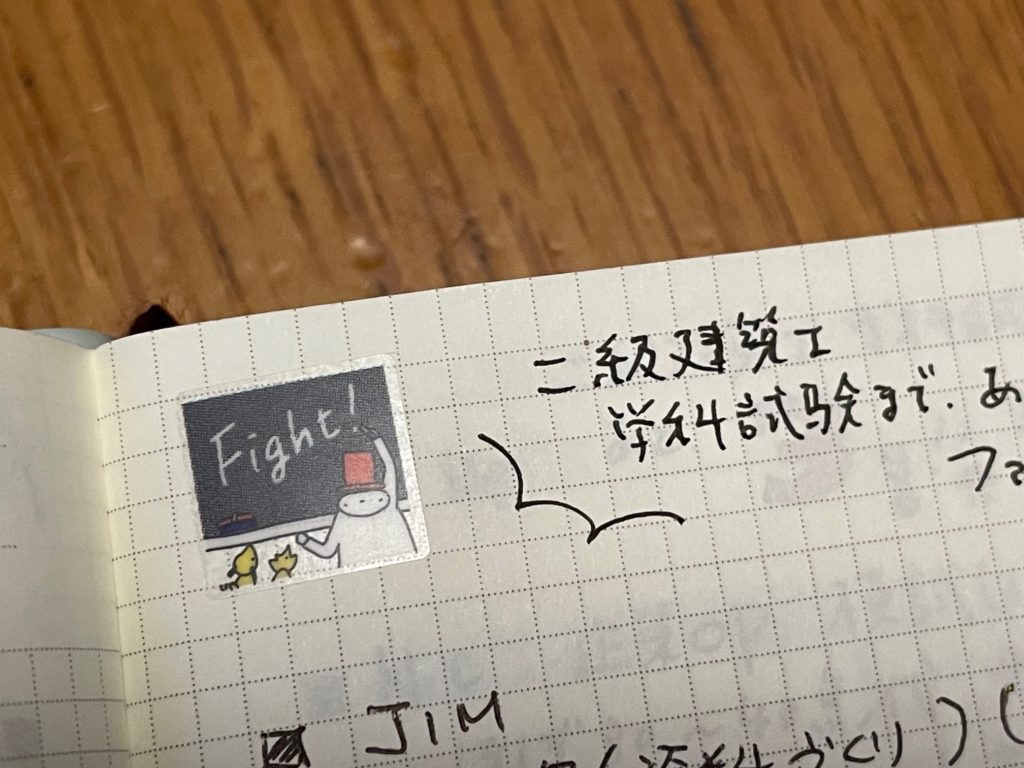 Fight!
二級建築士
学科試験まで.あ
JIM
(資料づくり)(